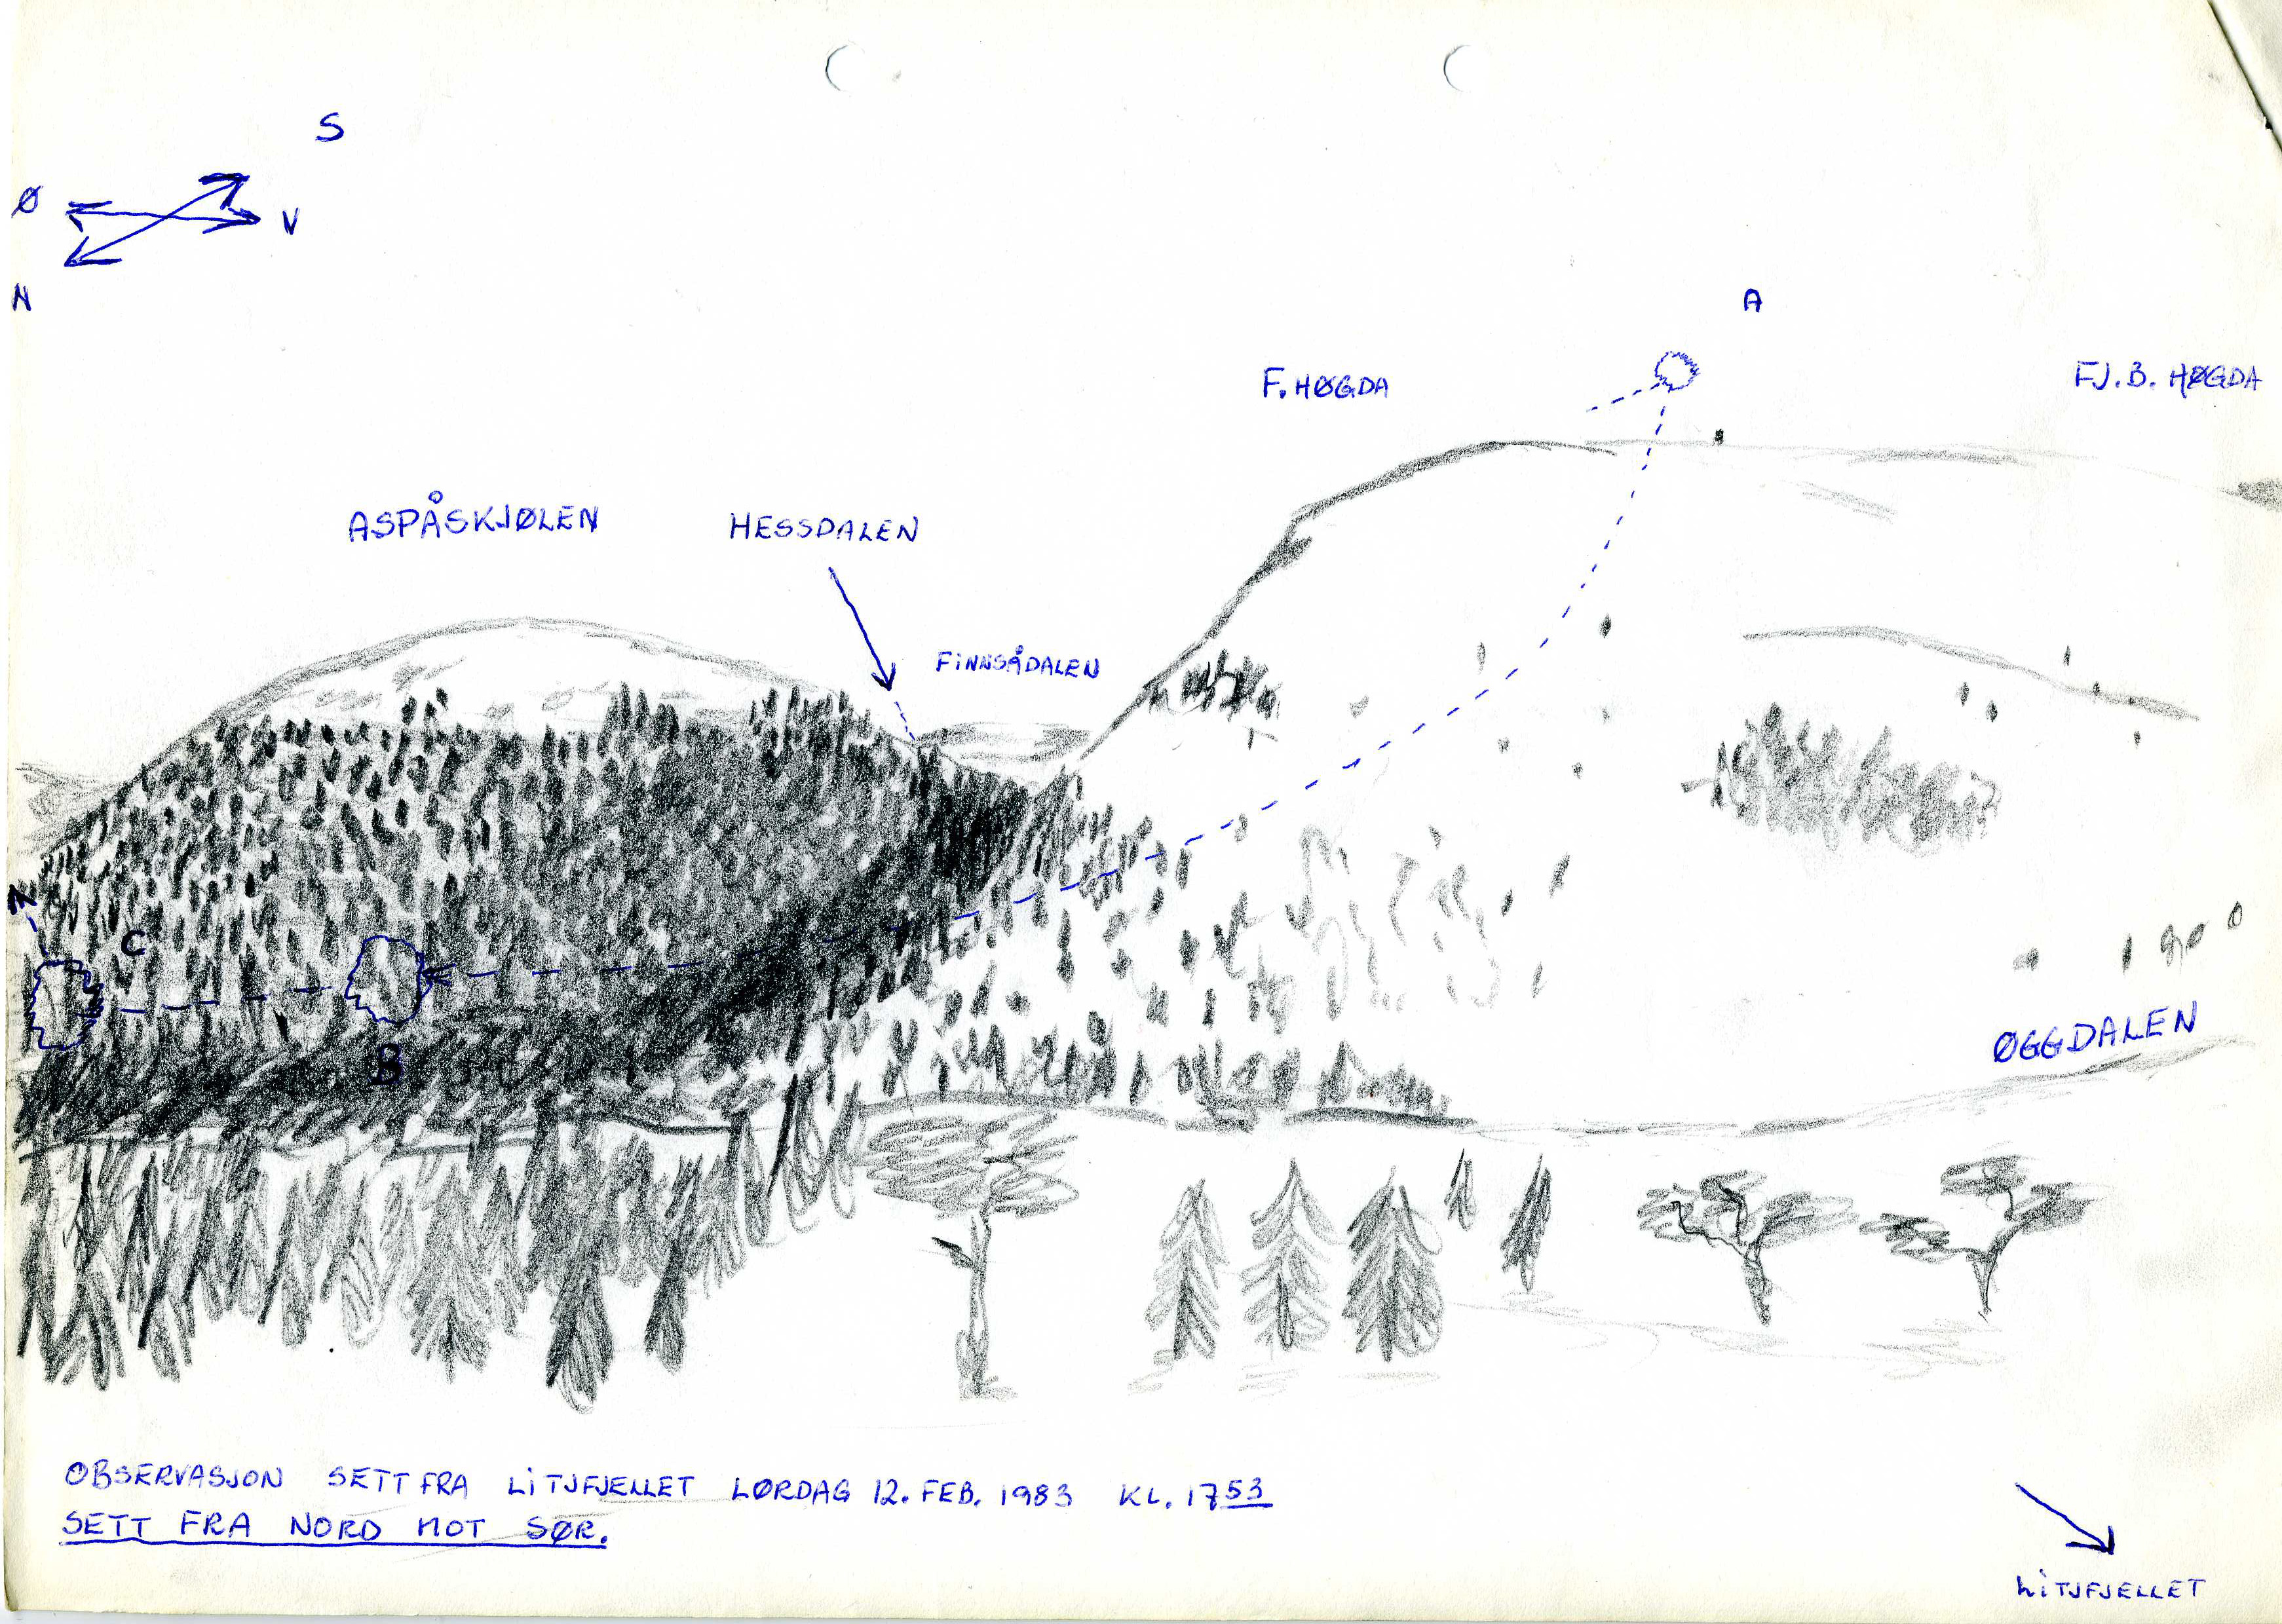 S
Ø
V
N
A
F. HØGDA
FJ. B. HØGDA
ASPÅSKJØLEN
HESSDALEN
FINNSÅDALEN
C
B
ØGGDALEN
OBSERVASJON SETT FRA LITJFJELLET LØRDAG 12. FEB. 1983 KL. 1753
SETT FRA NORD MOT SØR.
LITJFJELLET